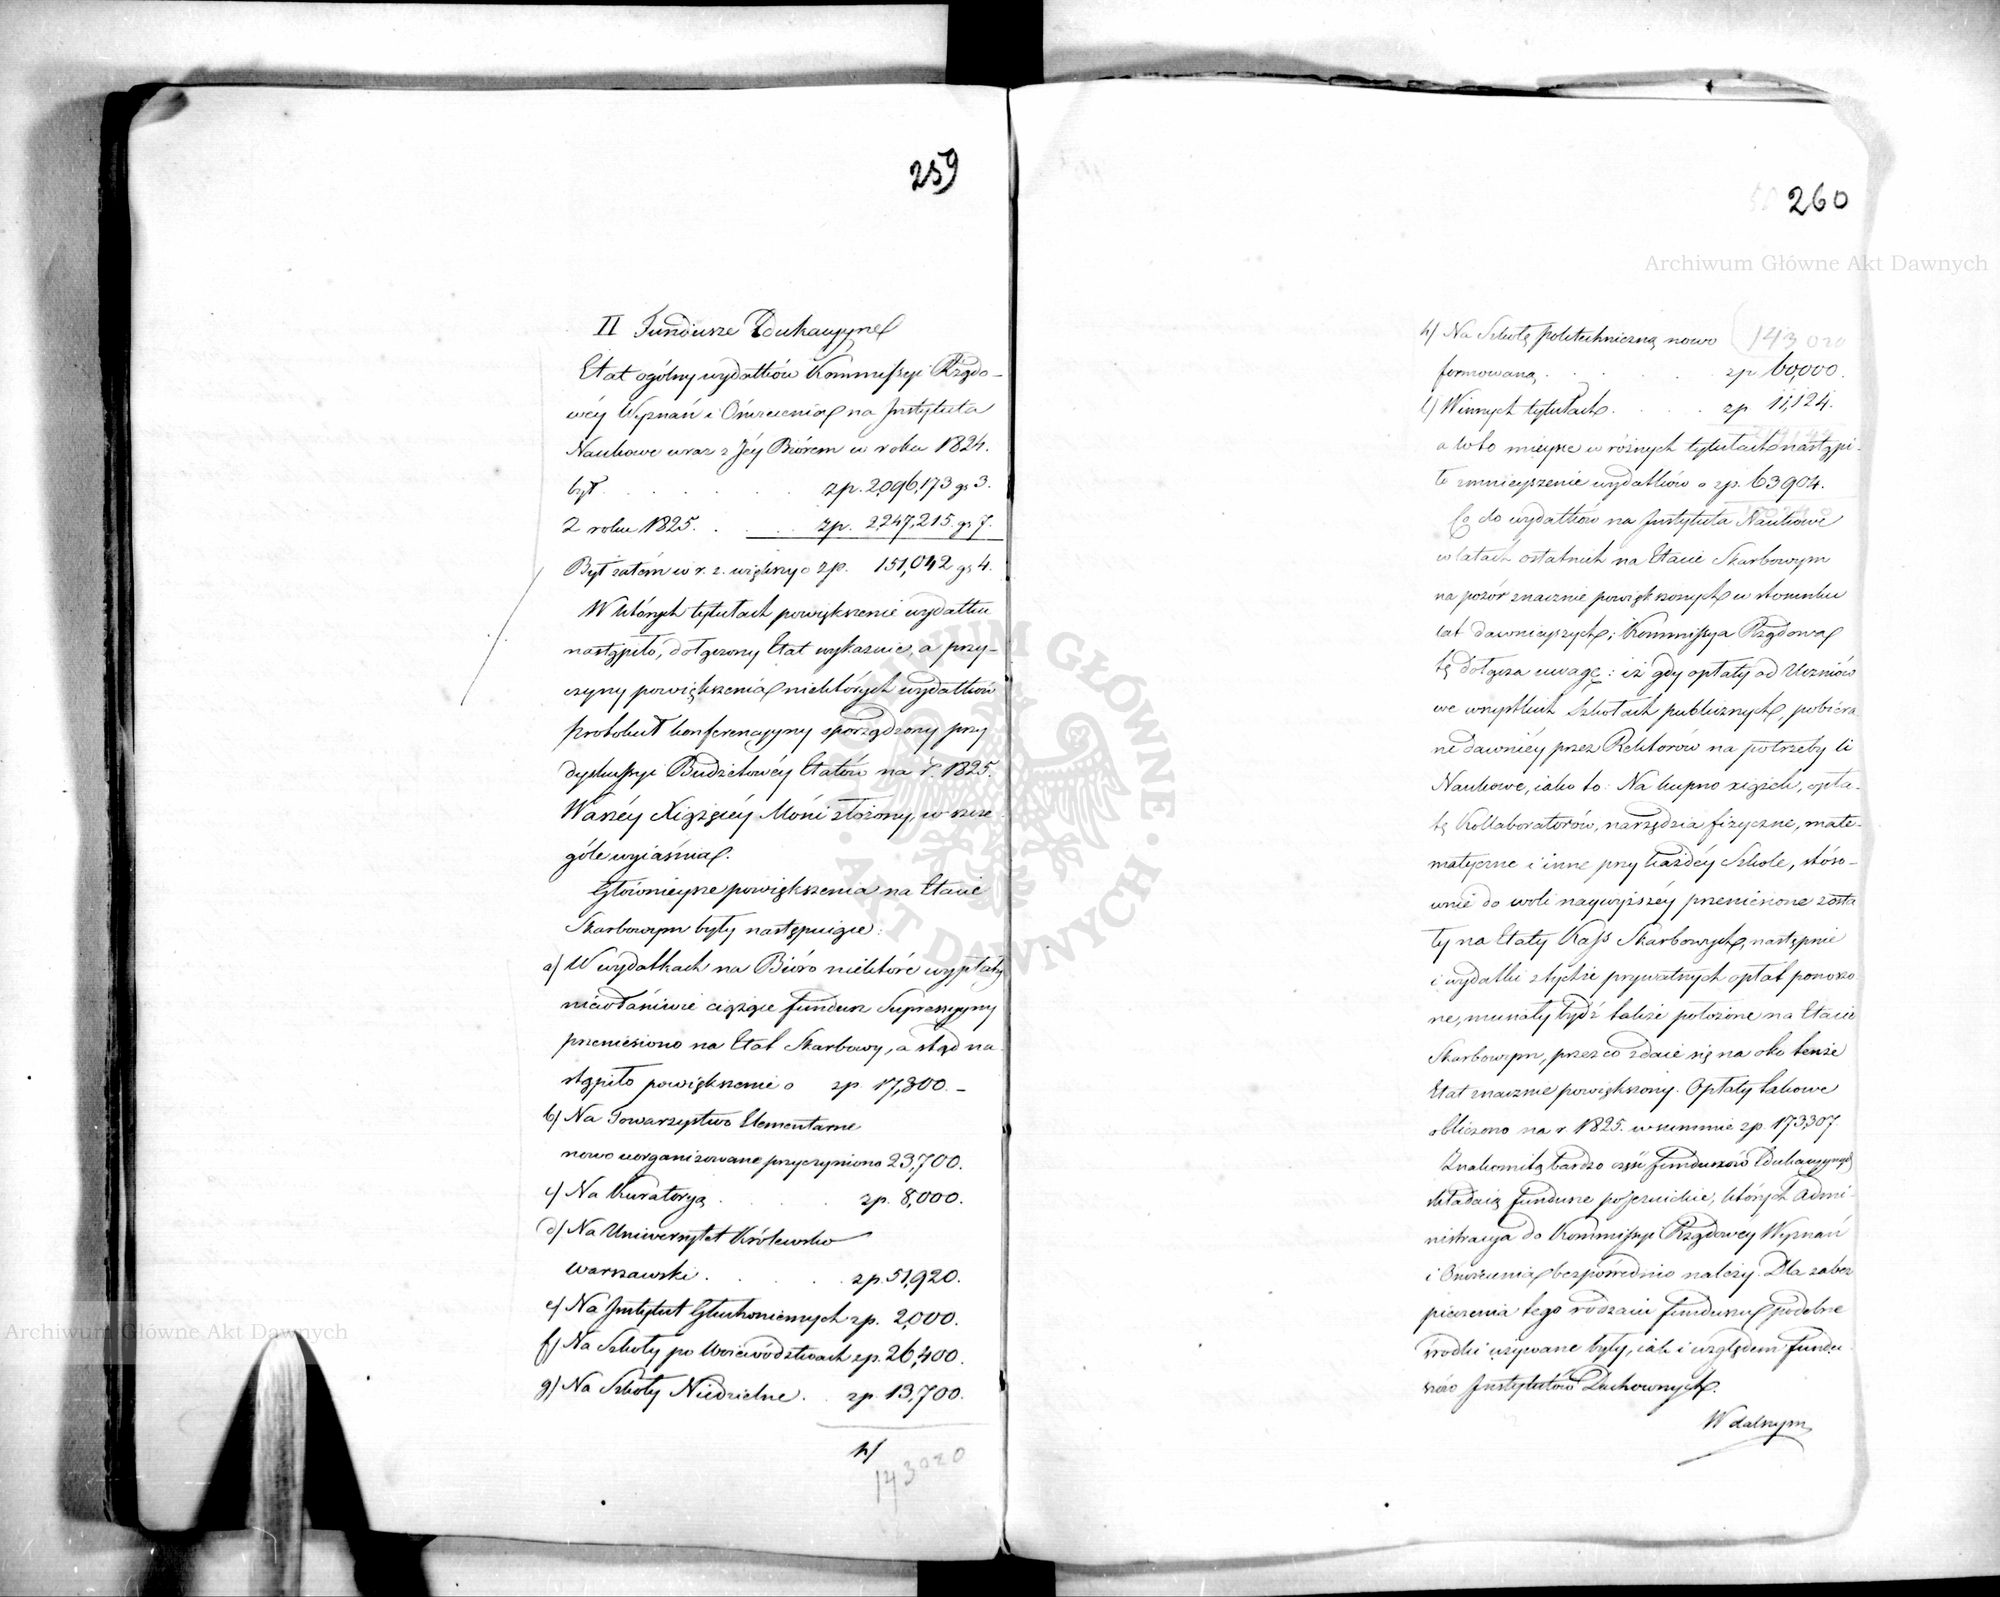 259
II Fundusze Edukacyjne
Etat ogólny wydatków Kommissyi Rządo-
wéy Wyznań i Oświecenia na Instytuta
Naukowe wraz z Jéy Biórem w roku 1824.
był . . . . . . zp. 2,096,173 gs 3.
Z roku 1825. . . . zp. 2,247,215. gs 7.
Był zatém w r. z. większy o zp. 151,042 gs 4.
W których tytułach powiększenie wydatku
nastąpiło, dołączony Etat wykazuie, a przy-
czyny powiększenia niektórych wydatków
protokuł konferencyyny sporządzony przy
dyskussyi Budżetowéy Etatów na r. 1825.
Waszéy Xiążęcéy Mości złożony, w szcze
góle wyiaśnia.
Głównieysze powiększenia na Etacie
Skarbowym były następuiące:
a) W wydatkach na Bióro niektóre wypłaty
niewłaściwie ciążące fundusz Supressyyny
przeniesiono na Etat Skarbowy, a stąd na
stąpiło powiększenie o zp. 17,300. –
b) Na Towarzystwo Elementarne
nowo uorganizowane przyczyniono 23,700.
c) Na Kuratoryą . . . . zp. 8,000.
d) Na Uniwersytet Królewsko
Warszawski . . . . zp. 51,920.
e) Na Instytut Głuchoniemych zp. 2,000.
f) Na Szkoły po Woiewództwach zp. 26,400.
g) Na Szkoły Niedzielne . . zp. 13,700.
h)
143020
260
Archiwum Główne Akt Dawnych
h) Na Szkołę politechniczną nowo (143 020
formowaną . . . . . zp 60,000.
i) W innych tytułach . . . . zp 11,124.
a w to mieysce w różnych tytułach nastąpi-
ło zmnieyszenie wydatków o zp. 63904.
Co do wydatków na Instytuta Naukowe
w latach ostatnich na Etacie Skarbowym
na pozór znacznie powiększonych w stosunku
lat dawnieyszych; Kommissya Rządowa
tę dołącza uwagę: iż gdy opłaty od Uczniów
we wszystkich Szkołach publicznych, pobiera
ne dawniéy przez Rektorów na potrzeby li
Naukowe, iako to: Na kupno xiążek, opła-
tę Kollaboratorów, narzędzia fizyczne, mate-
matyczne i inne przy każdéy Szkole, stóso-
wnie do woli naywyższéy przeniesione zosta
ły na Etaty Kass Skarbowych, następnie
i wydatki z tychże prywatnych opłat ponoszo
ne, musiały bydź także położone na Etacie
Skarbowym, przez co zdaie się na oko tenże
Etat znacznie powiększony. Opłaty takowe
obliczono na r. 1825. w summie zp. 173,307.
Znakomitą bardzo część funduszów Edukacyynych
składaią fundusze pojezuickie, których Admi-
nistracya do Kommissyi Rządowéy Wyznań
i Oświecenia bezpośrednio należy. Dla zabez
pieczenia tego rodzaiu funduszu podobne
środki używane były, iak i względem fundu
szów Instytutów Duchownych.
W dalszym
Archiwum Główne Akt Dawnych
ARCHIWUM GŁÓWNE · AKT DAWNYCH ·